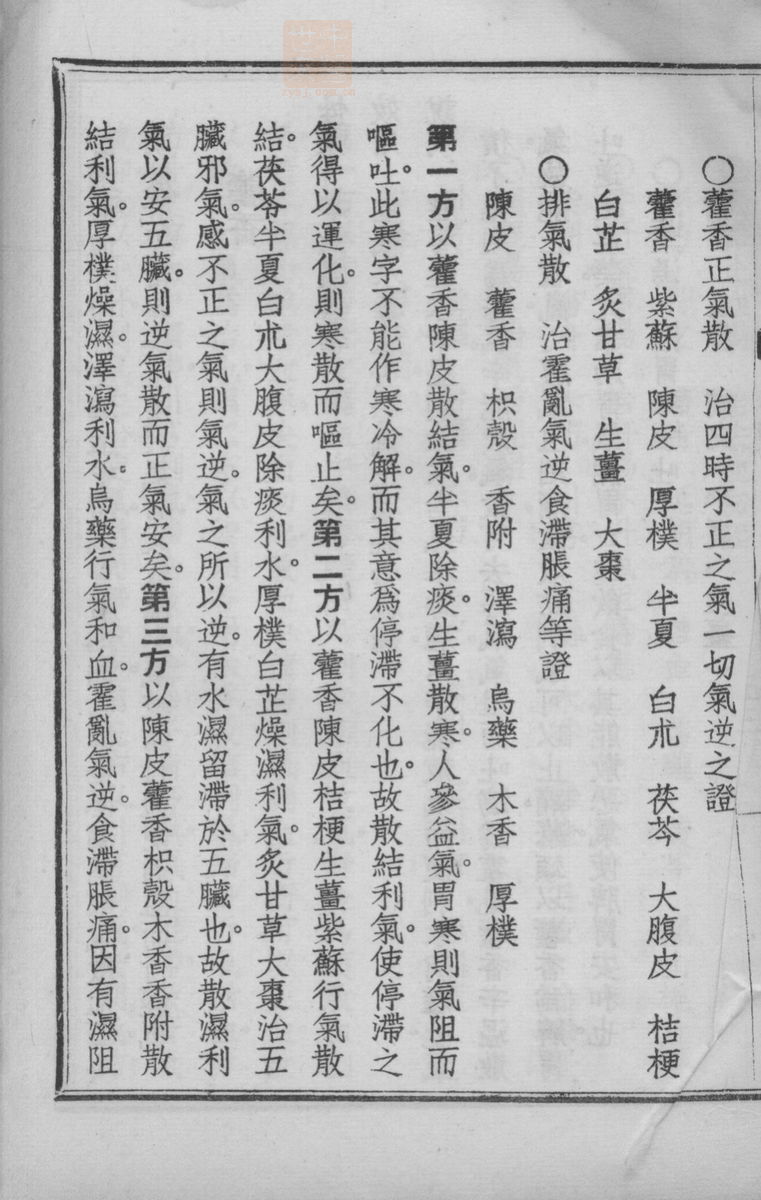 〇藿香正氣散　治四時不正之氣一切氣逆之證
藿香　紫蘇　陳皮　厚樸　半夏　白朮　茯苓　大腹皮　桔梗
白芷　炙甘草　生薑　大棗
〇排氣散　治霍亂氣逆食滯脹痛等證
陳皮　藿香　枳殼　香附　澤瀉　烏藥　木香　厚樸
第一方以藿香陳皮散結氣。半夏除痰。生薑散寒。人參益氣。胃寒則氣阻而
嘔吐。此寒字不能作寒冷解。而其意爲停滯不化也。故散結利氣。使停滯之
氣得以運化。則寒散而嘔止矣。第二方以藿香陳皮桔梗生薑紫蘇行氣散
結。茯苓半夏白朮大腹皮除痰利水。厚樸白芷燥濕利氣。炙甘草大棗治五
臟邪氣。感不正之氣則氣逆。氣之所以逆。有水濕留滯於五臟也。故散濕利
氣以安五臟。則逆氣散而正氣安矣。第三方以陳皮藿香枳殼木香香附散
結利氣。厚樸燥濕。澤瀉利水。烏藥行氣和血。霍亂氣逆。食滯脹痛。因有濕阻